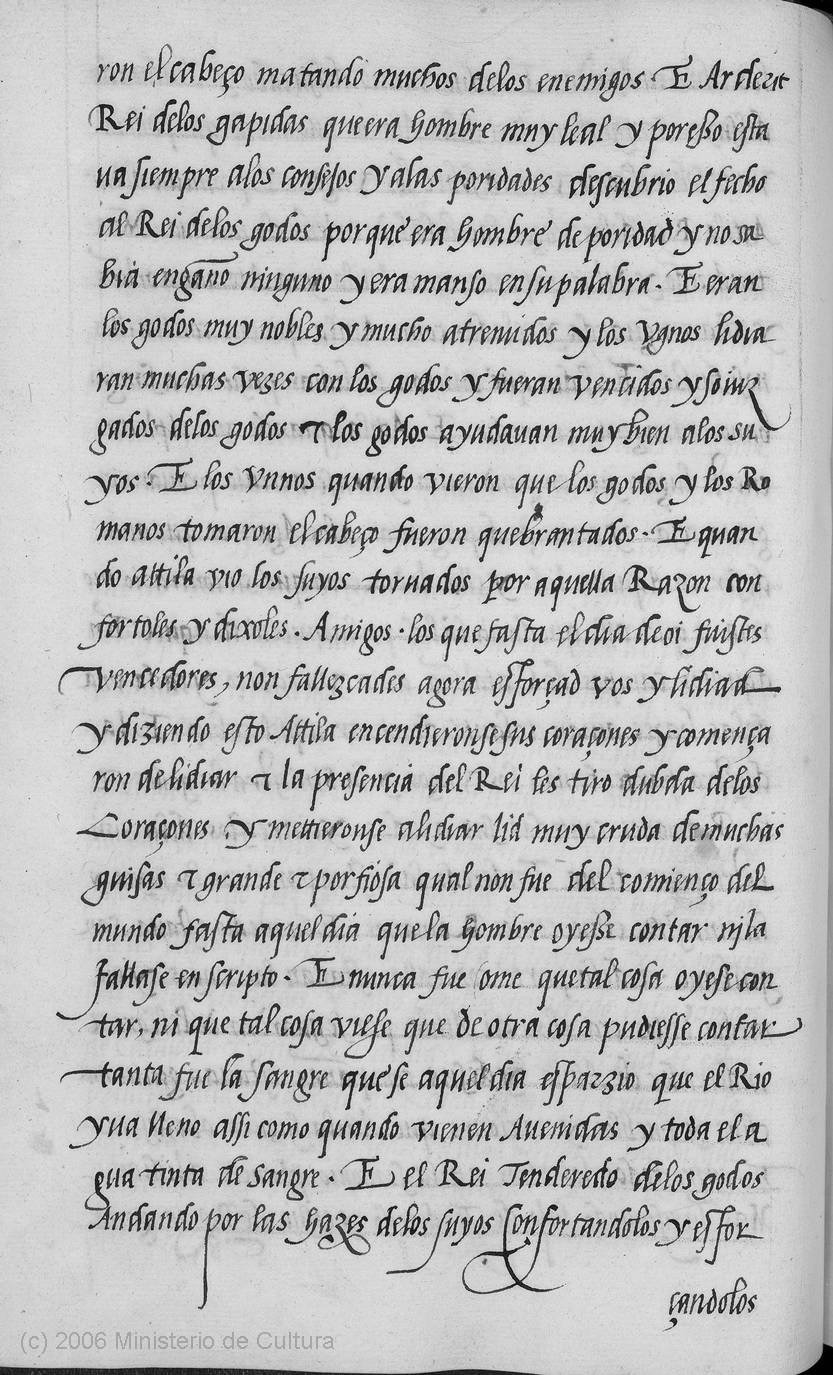 ron el cabeço matando muchos delos enemigos. E Arderic
Rei delos gapidas que era hombre muy leal y poresso esta
ua siempre alos consejos y alas poridades descubrio el fecho
al Rei delos godos porque era hombre de poridad y no sa
bia engaño ninguno y era manso en su palabra. E eran
los godos muy nobles y mucho atreuidos y los Vgnos lidia
ran muchas vezes con los godos y fueran vencidos y soiuz
gados delos godos τ los godos ayudauan muy bien alos su
yos. E los Vnnos quando vieron que los godos y los Ro
manos tomaron el cabeço fueron quebrantados. E quan
do attila vio los suyos toruados por aquella Razon con
fortoles y dixoles. Amigos. los que fasta el dia de oi fuistes
vencedores, non fallezcades agora esforçad vos y lidiad
y diziendo esto Attila encendieronse sus coraçones y comença
ron de lidiar τ la presencia del Rei les tiro dubda delos
Coraçones y mettieronse alidiar lid muy cruda de muchas
guisas τ grande τ porfiosa qual non fue del comienço del
mundo fasta aquel dia que la hombre oyesse contar nj la
fallase en scripto. E nunca fue ome que tal cosa oyese con
tar, ni que tal cosa viesse que de otra cosa pudiesse contar
tanta fue la sangre que se aquel dia esparzio que el Rio
yua lleno assi como quando vienen Auenidas y toda el a
gua tinta de sangre. E el Rei Tenderedo delos godos
Andando por las hazes delos suyos Confortandolos y esfor
çandolos
(c) 2006 Ministerio de Cultura